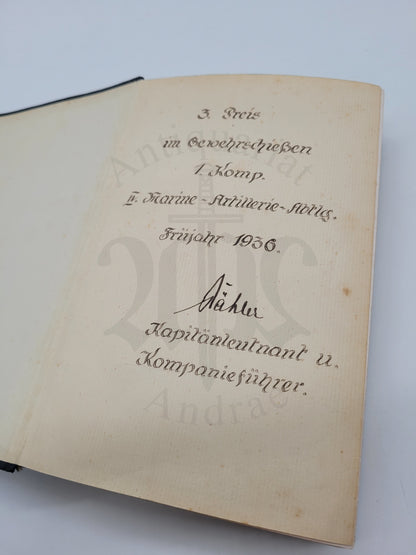 3. Preis
im Gewehrschießen
1. Komp.
II. Marine-Artillerie-Abtlg.
Frühjahr 1936.
Kapitänleutnant u.
Kompanieführer.
Antiquariat
Andrae